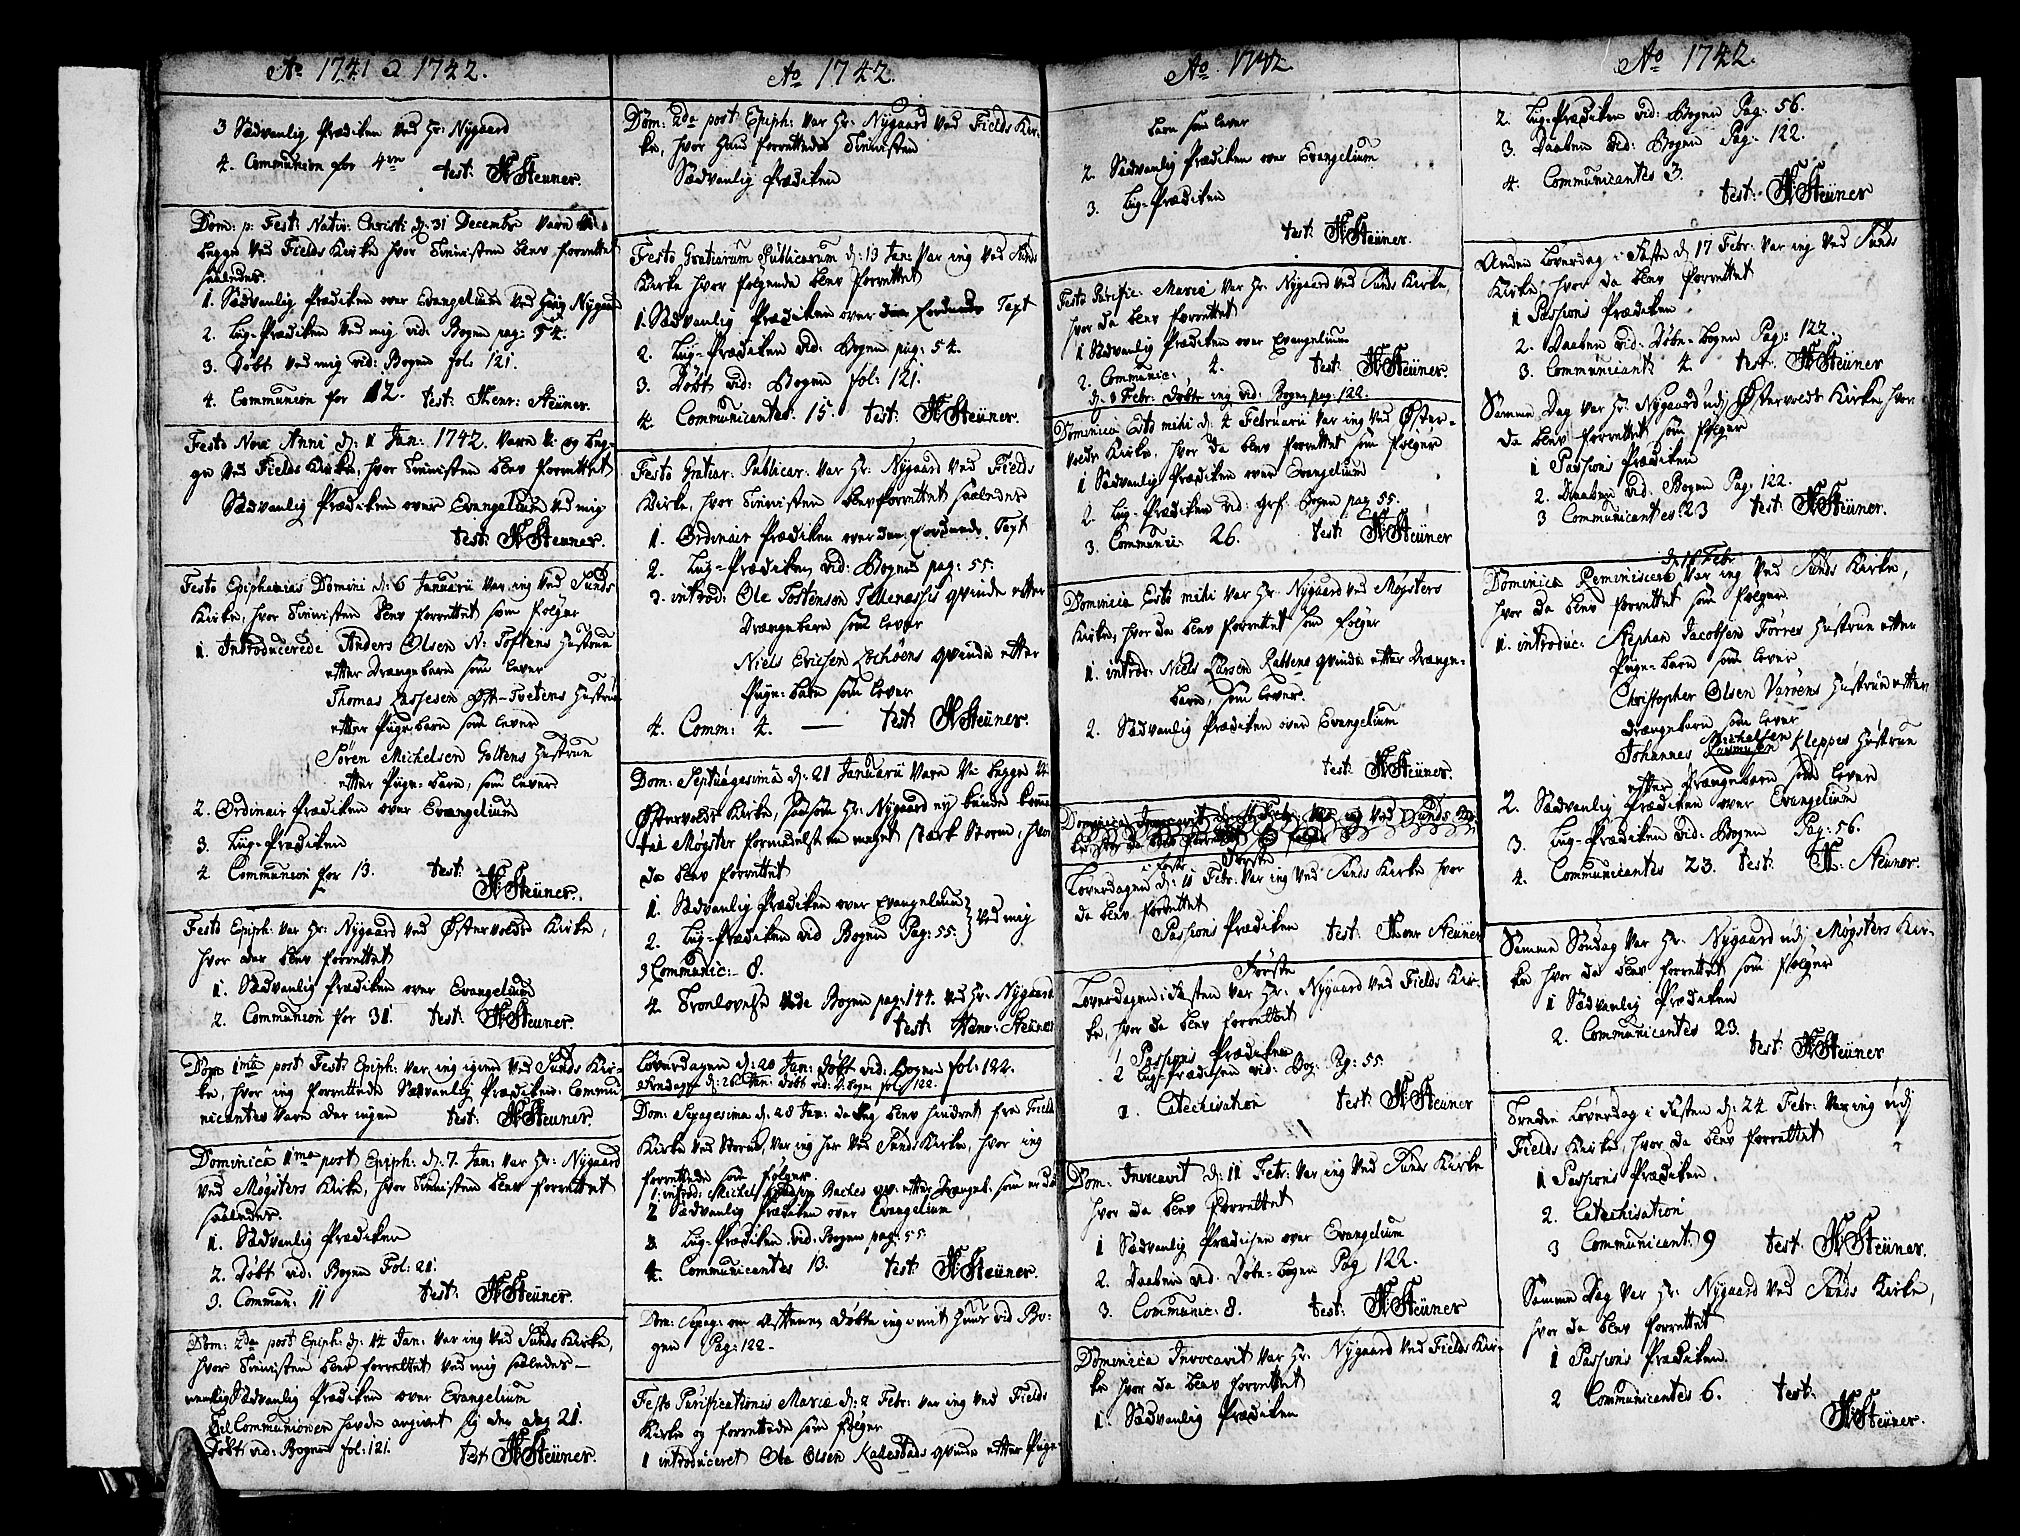 Ao 1741 & 1742.
3 Sædvanlig Prædiken ved Hr: Nÿgaard
4. Communion for 4re test: HSteuner.
Dom: p: Fest: Nativ: Christi d: 31 Decembr varn
begge ved Fields Kirke hvor Tienisten blev forrettet
saaledes.
1. Sædvanlig Prædiken over Evangelium ved Nÿgaard
2. Liig-Prædiken ved mig vid: Bogen pag: 54.
3. Døbt ved mig vid: Bogen fol: 121.
4. Communion for 12. test: Henr: Steuner.
Festo Novi Anni d: 1 Jan: 1742. varn Vi og beg-
ge ved Fields Kirke, hvor Tienisten blev forrettet
Sædvanlig Prædiken over Evangelium ved mig
test: HSteuner.
Festo Epiphanias Domini d: 6 Januarii var ieg ved Sunds
Kirke, hvor Tienisten blev forrettet som følger
1. Introducerede Anders Olsen N: Toftens Hustrue
efter Drængebarn som lever
Thomas Lassesen Øst-Tvetens Hustrue
efter Pigebarn som lever
Søren Michelsen Goltens Hustrue
efter Pige-barn, som lever
2. Ordinair Prædiken over Evangelium
3. Liig-Prædiken
4 Communion for 13. test: HSteuner.
Festo Epiph: var Hr: Nÿgaard ved Østervolds Kirke,
hvor der blev forrettet
1. Sædvanlig Prædiken over Evangelium
2. Communion for 31. test: HSteuner.
Dom 1ma post Fest: Epiph: var ieg igien ved Sunds Kir-
ke, hvor ieg forrettede Sædvanlig Prædiken: Commu-
nicantes varn der ingen test: HSteuner.
Dominica 1ma post Epiph: d: 7. Jan: var Hr: Nÿgaard
ved Møgsters Kirke, hvor Tienisten blev forrettet
saaledes.
1. Sædvanlig Prædiken
2. Døbt vid: Bogen Fol: 21.
3. Commun: 11 test: HSteuner.
Dom: 2da post Epiph: d: 14 Jan: var ieg ved Sunds Kirke,
hvor Tienisten blev forrettet ved mig saaledes
nemlig Sædvanlig Prædiken over Evangelium
Til Communionen havde angivet sig den dag 21.
Døbt vid: Bogen fol: 121. test HSteuner.
Ao 1742.
Dom: 2da post Epiph: var Hr: Nÿgaard ved Fields Kir-
ke, hvor Hand forrettede Tienisten
Sædvanlig Prædiken
Festo Gratiarum Publicarum d: 19 Jan: var ieg ved Sunds
Kirke hvor følgende blev forrettet
1 Sædvanlig Prædiken over Text
2. Liig-Prædiken vid: Bogen pag: 54.
3. Døbt vid: Bogen fol: 121.
4. Communicantes: 15. test: HSteuner.
Festo Gratiar: Publicar: var Hr: Nÿgaard ved Fields
Kirke, hvor Tienisten blev forrettet saaledes
1. Ordinair Prædiken over den Text
2. Liig-Prædiken vid: Bogen pag: 55.
3. introd: Ole Tostensøn Tellenessis qvinde efter
Drængebarn som lever
Niels Ericsen Lochøens qvinde efter
Pige-barn som lever
4. Comm: 4. — test: HSteuner.
Dom: Septuagesima d: 21 Januarii varn Vi begge til
Østervolds Kirke, saasom Hr: Nÿgaard ej kunde komme
til Møgster formedelst en meget stærk Storm, hvor
da blev forrettet
1. Sædvanlig Prædiken over Evangelium
2. Liig-Prædiken vid Bogen Pag: 55. ved mig
3 Communic: 8.
4. Tronlovelse vide Bogen pag: 144. ved Hr: Nÿgaard
test: Henr: Steuner
Løverdagen d: 20 Jan: Døbt vid: Bogen fol: 122.
Fredagen d: 26 Jan: døbt vid: Bogen fol: 122.
Dom: Sexagesima d: 28 Jan: da ieg blev hindret fra Fields
Kirke ved Storm, var ieg her ved Sunds Kirke, hvor ieg
forrettede som følger.
1: introd: Michel Baches qv: efter Drængeb: som er død
2 Sædvanlig Prædiken over Evangelium
3. Liig-Prædiken vid: Bogen pag: 55.
4. Communicantes 13. test: HSteuner.
Dom: Sexag: om Aftenen døbte ieg i mit Huus vid Bo-
gen Pag: 122-
Festo Purificationis Mariæ d: 2 Febr: var ieg ved Fields
Kirke og forrettede som følger
1 introduceret Ole Olsen Kallestads qvinde efter Pige-
Ao 1742
barn som lever
2. Sædvanlig Prædiken over Evangelium
3. Liig-Prædiken
test: HSteuner.
Festo Purific: Mariæ var Hr: Nÿgaard ved Sunds Kirke,
hvor da blev forrettet
1 Sædvanlig Prædiken over Evangelium
2. Communic: 2. test: HSteuner.
d: 3 Febr: døbte ieg vid: Bogen pag: 122.
Dominica Esto mihi d: 4 Februarii var ieg ved Øster-
volds Kirke, hvor da blev forrettet som følger
1 Sædvanlig Prædiken over Evangelium
2. Liig-Prædiken vid: Bogen pag 55.
3. Communi: 26. test: HSteuner
Dominica Esto mihi var Hr: Nÿgaard ved Møgsters
Kirke, hvor da blev forrettet som følger
1. introd: Niels Larsen Rabbens qvinde efter Drænge-
barn, som lever.
2. Sædvanlig Prædiken over Evangelium
test: HSteuner.
Dominica Invocavit d: 11 Febr: var ieg ved Sunds Kir-
ke hvor da blev forrettet
Første
Løverdagen i Faste d: Febr: var ieg ved Sunds Kirke hvor
da blev forrettet
Passions Prædiken test: Henr Steuner
Første
Løverdagen i Fasten var Hr: Nÿgaard ved Fields Kir-
ke, hvor da blev forrettet
1 Passions Prædiken
2 Liig-Prædiken vid: Bog: Pag: 55
3. Catechisation test: HSteuner
Dom: Invocavit d: 11 Febr: var ieg ved Sunds Kirke
hvor da blev forrettet
1 Sædvanlig Prædiken over Evangelium
2. Daaben vid: Døbe-bogen Pag 122.
3. Communic: 8. test: HSteuner
Dominica Invocavit var Hr: Nÿgaard ved Fields Kir-
ke hvor da blev forrettet
1. Sædvanlig Prædiken
Ao 1742.
2. Liig-Prædiken vid: Bogen Pag: 56.
3. Daaben vid: Bogen Pag: 122.
4. Communicantes 3.
test: HSteuner
Anden Løverdag i Faste d: 17 Febr: var ieg ved Sunds
Kirke, hvor da blev forrettet
1 Passions Prædiken
2. Daaben vid: Døbe-bogen Pag: 122.
3. Communicants 4. test: HSteuner
Samme Dag var Hr: Nÿgaard udj Østervolds Kirke, hvor
da blev forrettet som følger
1 Passions Prædiken
2. Daaben vid: Bogen Pag: 122.
3 Communicantes: 23 test: HSteuner.
d: 18 Febr:
Dominica Reminiscere var ieg ved Sunds Kirke,
hvor da blev forrettet som følger
1. introduc: Stephan Jacobsen Førres Hustrue efter
Pige-barn som lever
Christopher Olsen Varøens Hustrue efter
Drængebarn som lever
Michelsen
Johannes Kleppes Hustrue
efter Drængebarn som lever
2. Sædvanlig Prædiken over Evangelium
3. Liig-Prædiken vid: Bogen Pag: 56.
4. Communicantes 23. test: H: Steuner.
Samme Søndag var Hr: Nÿgaard udj Møgsters Kir-
ke hvor da blev forrettet som følger
1 Sædvanlig Prædiken
2. Communicantes 23.
test: HSteuner
Tredie Løverdag i Fasten d: 24 Febr: var ieg udj
Fields Kirke, hvor da blev forrettet
1 Passions Prædiken.
2. Catechisation
3 Communicant: 9 test: HSteuner.
Samme Dag var Hr: Nÿgaard ved Sunds Kirke,
hvor da blev forrettet
1 Passions Prædiken.
2 Communicantes 6. test:
HSteuner.